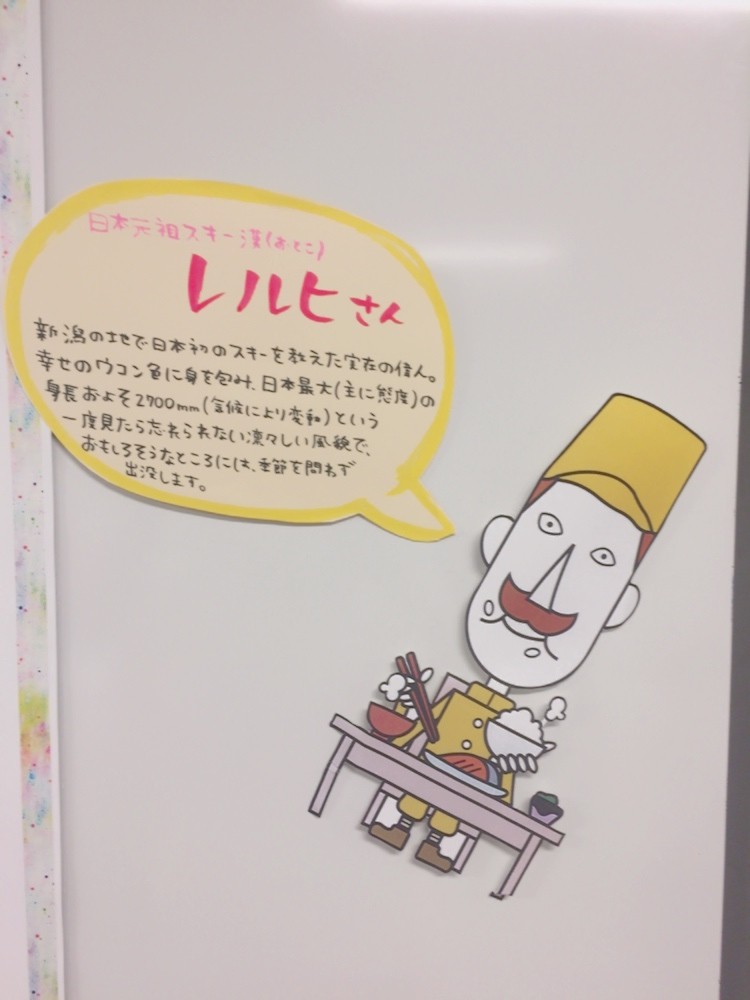 日本元祖スキー漢(おとこ)
レルヒさん
新潟の地で日本初のスキーを教えた実在の偉人。
幸せのウコン色に身を包み、日本最大(主に態度)の
身長およそ2700mm(気候により変動)という
一度見たら忘れられない凛々しい風貌で、
おもしろそうなところには、季節を問わず
出没します。